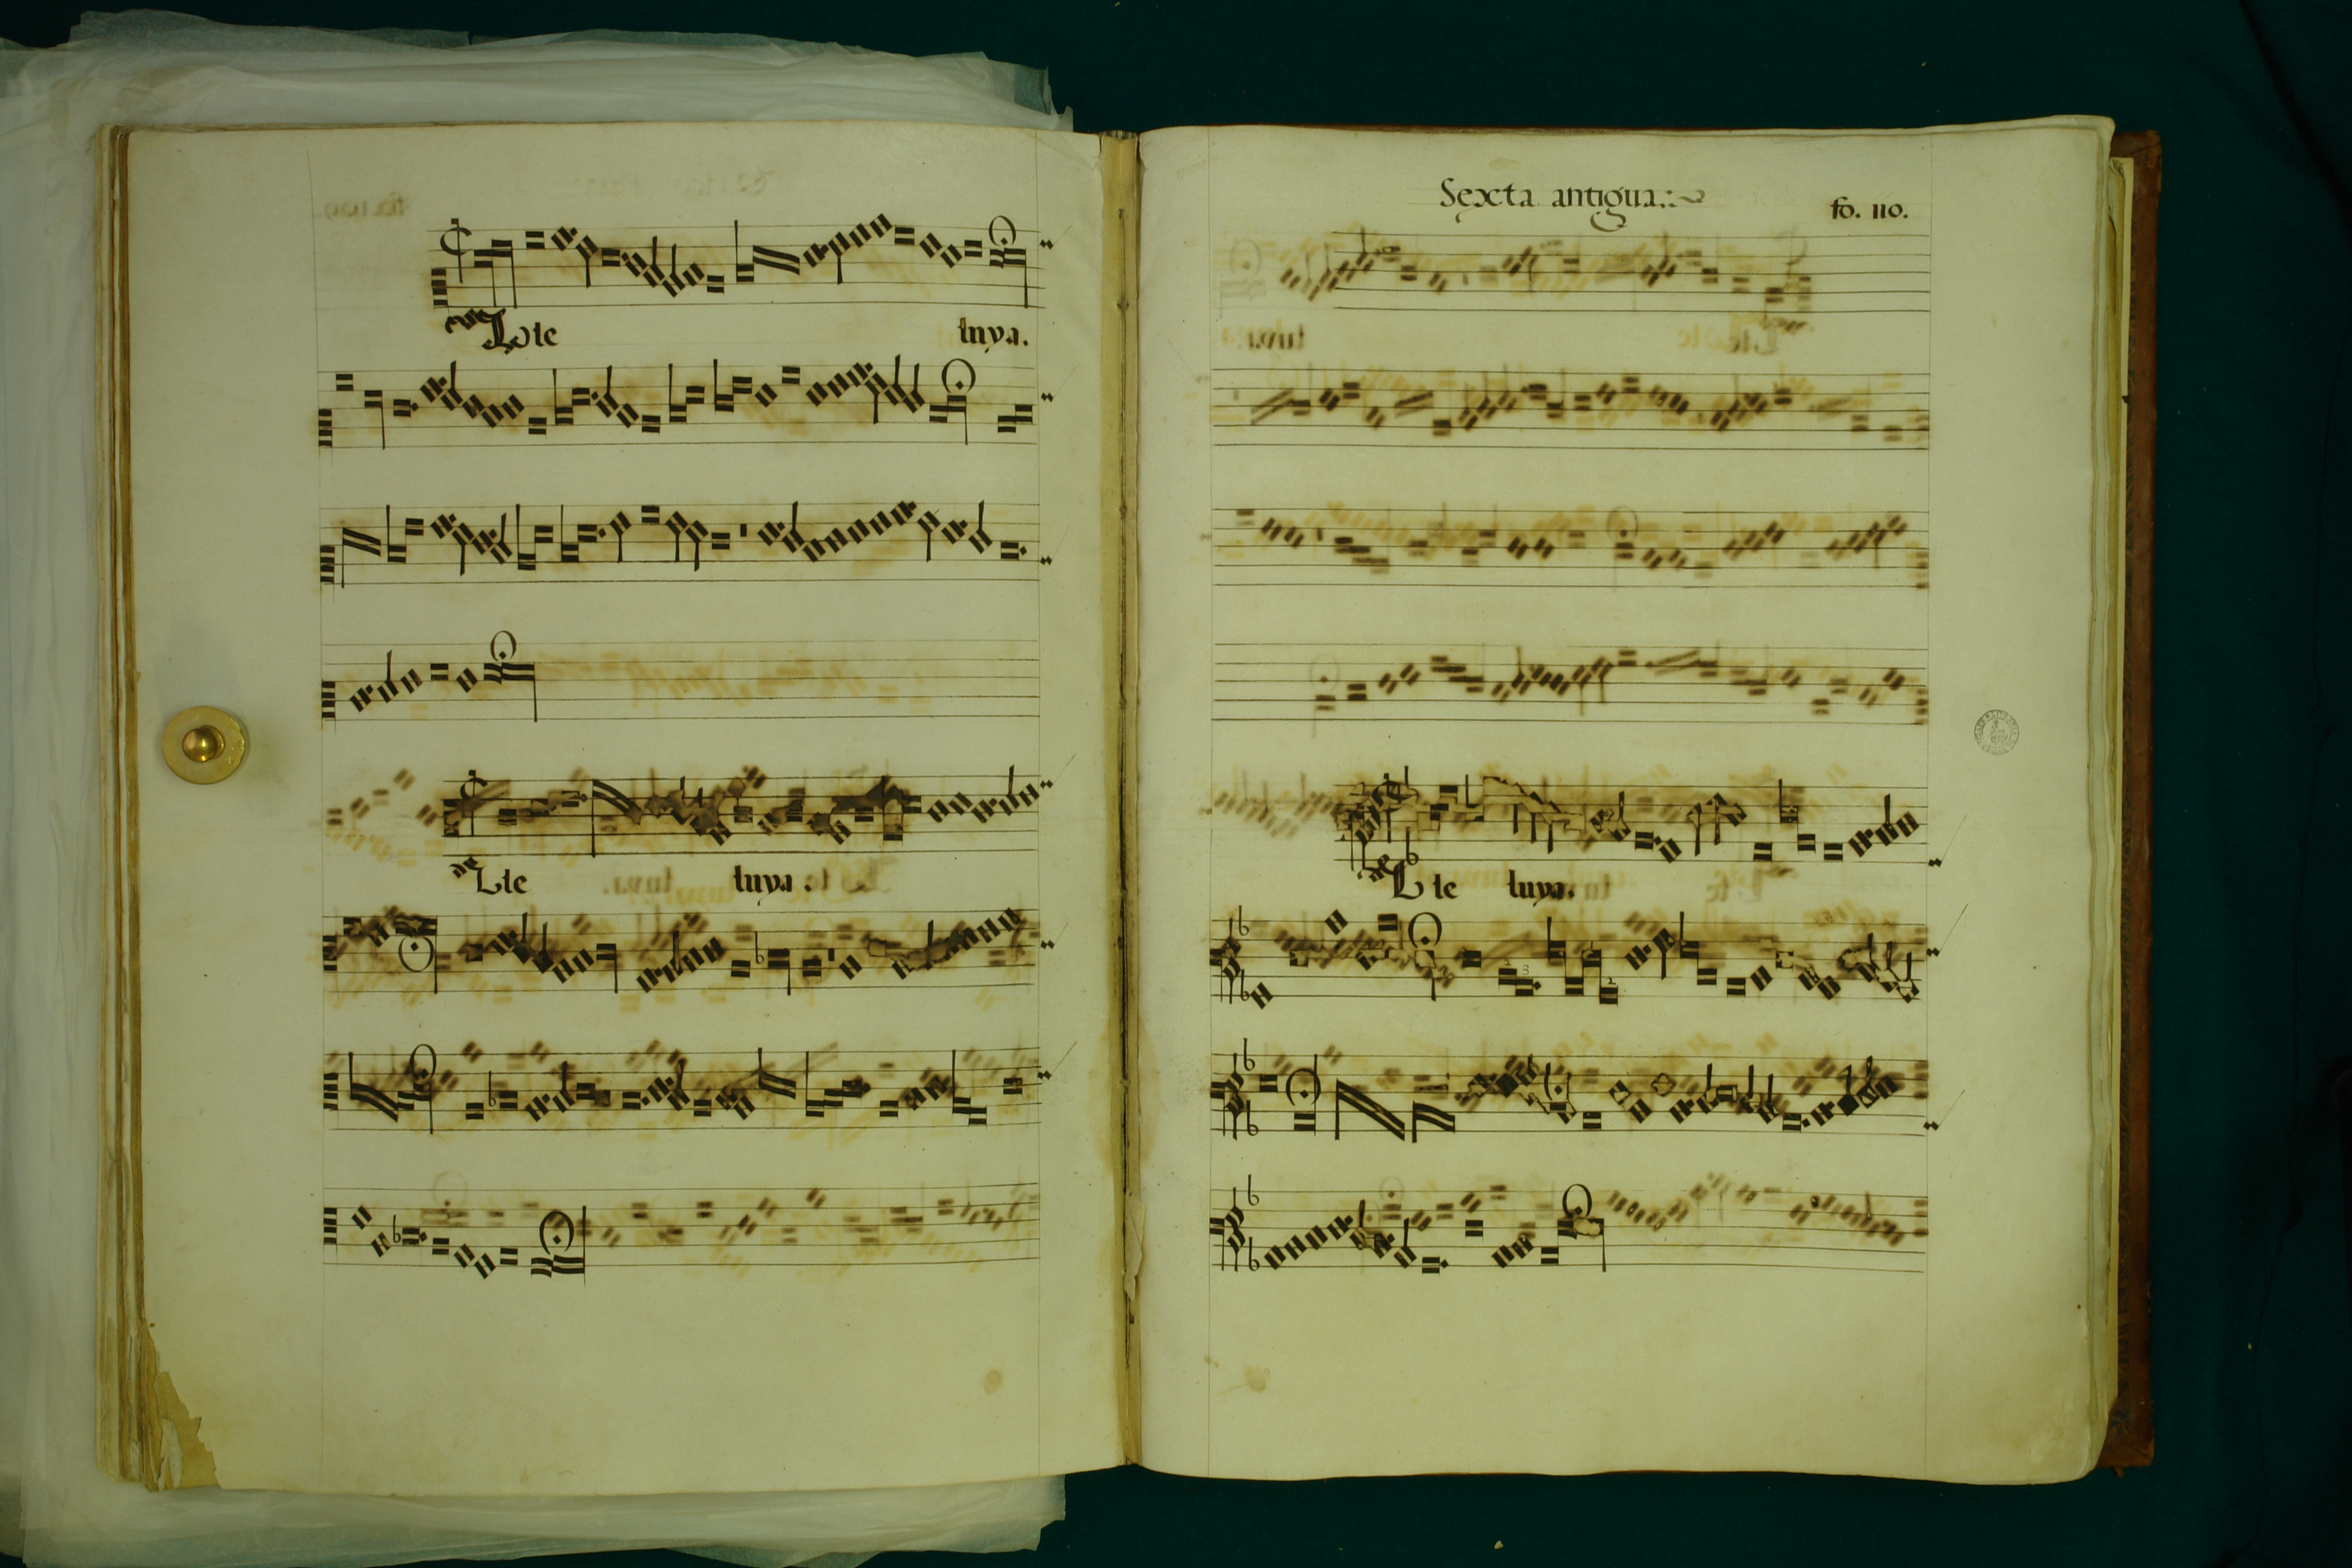 Lle luya.
Lle luya.
Sexta antigua:~
fo. 110.
Lle luya.